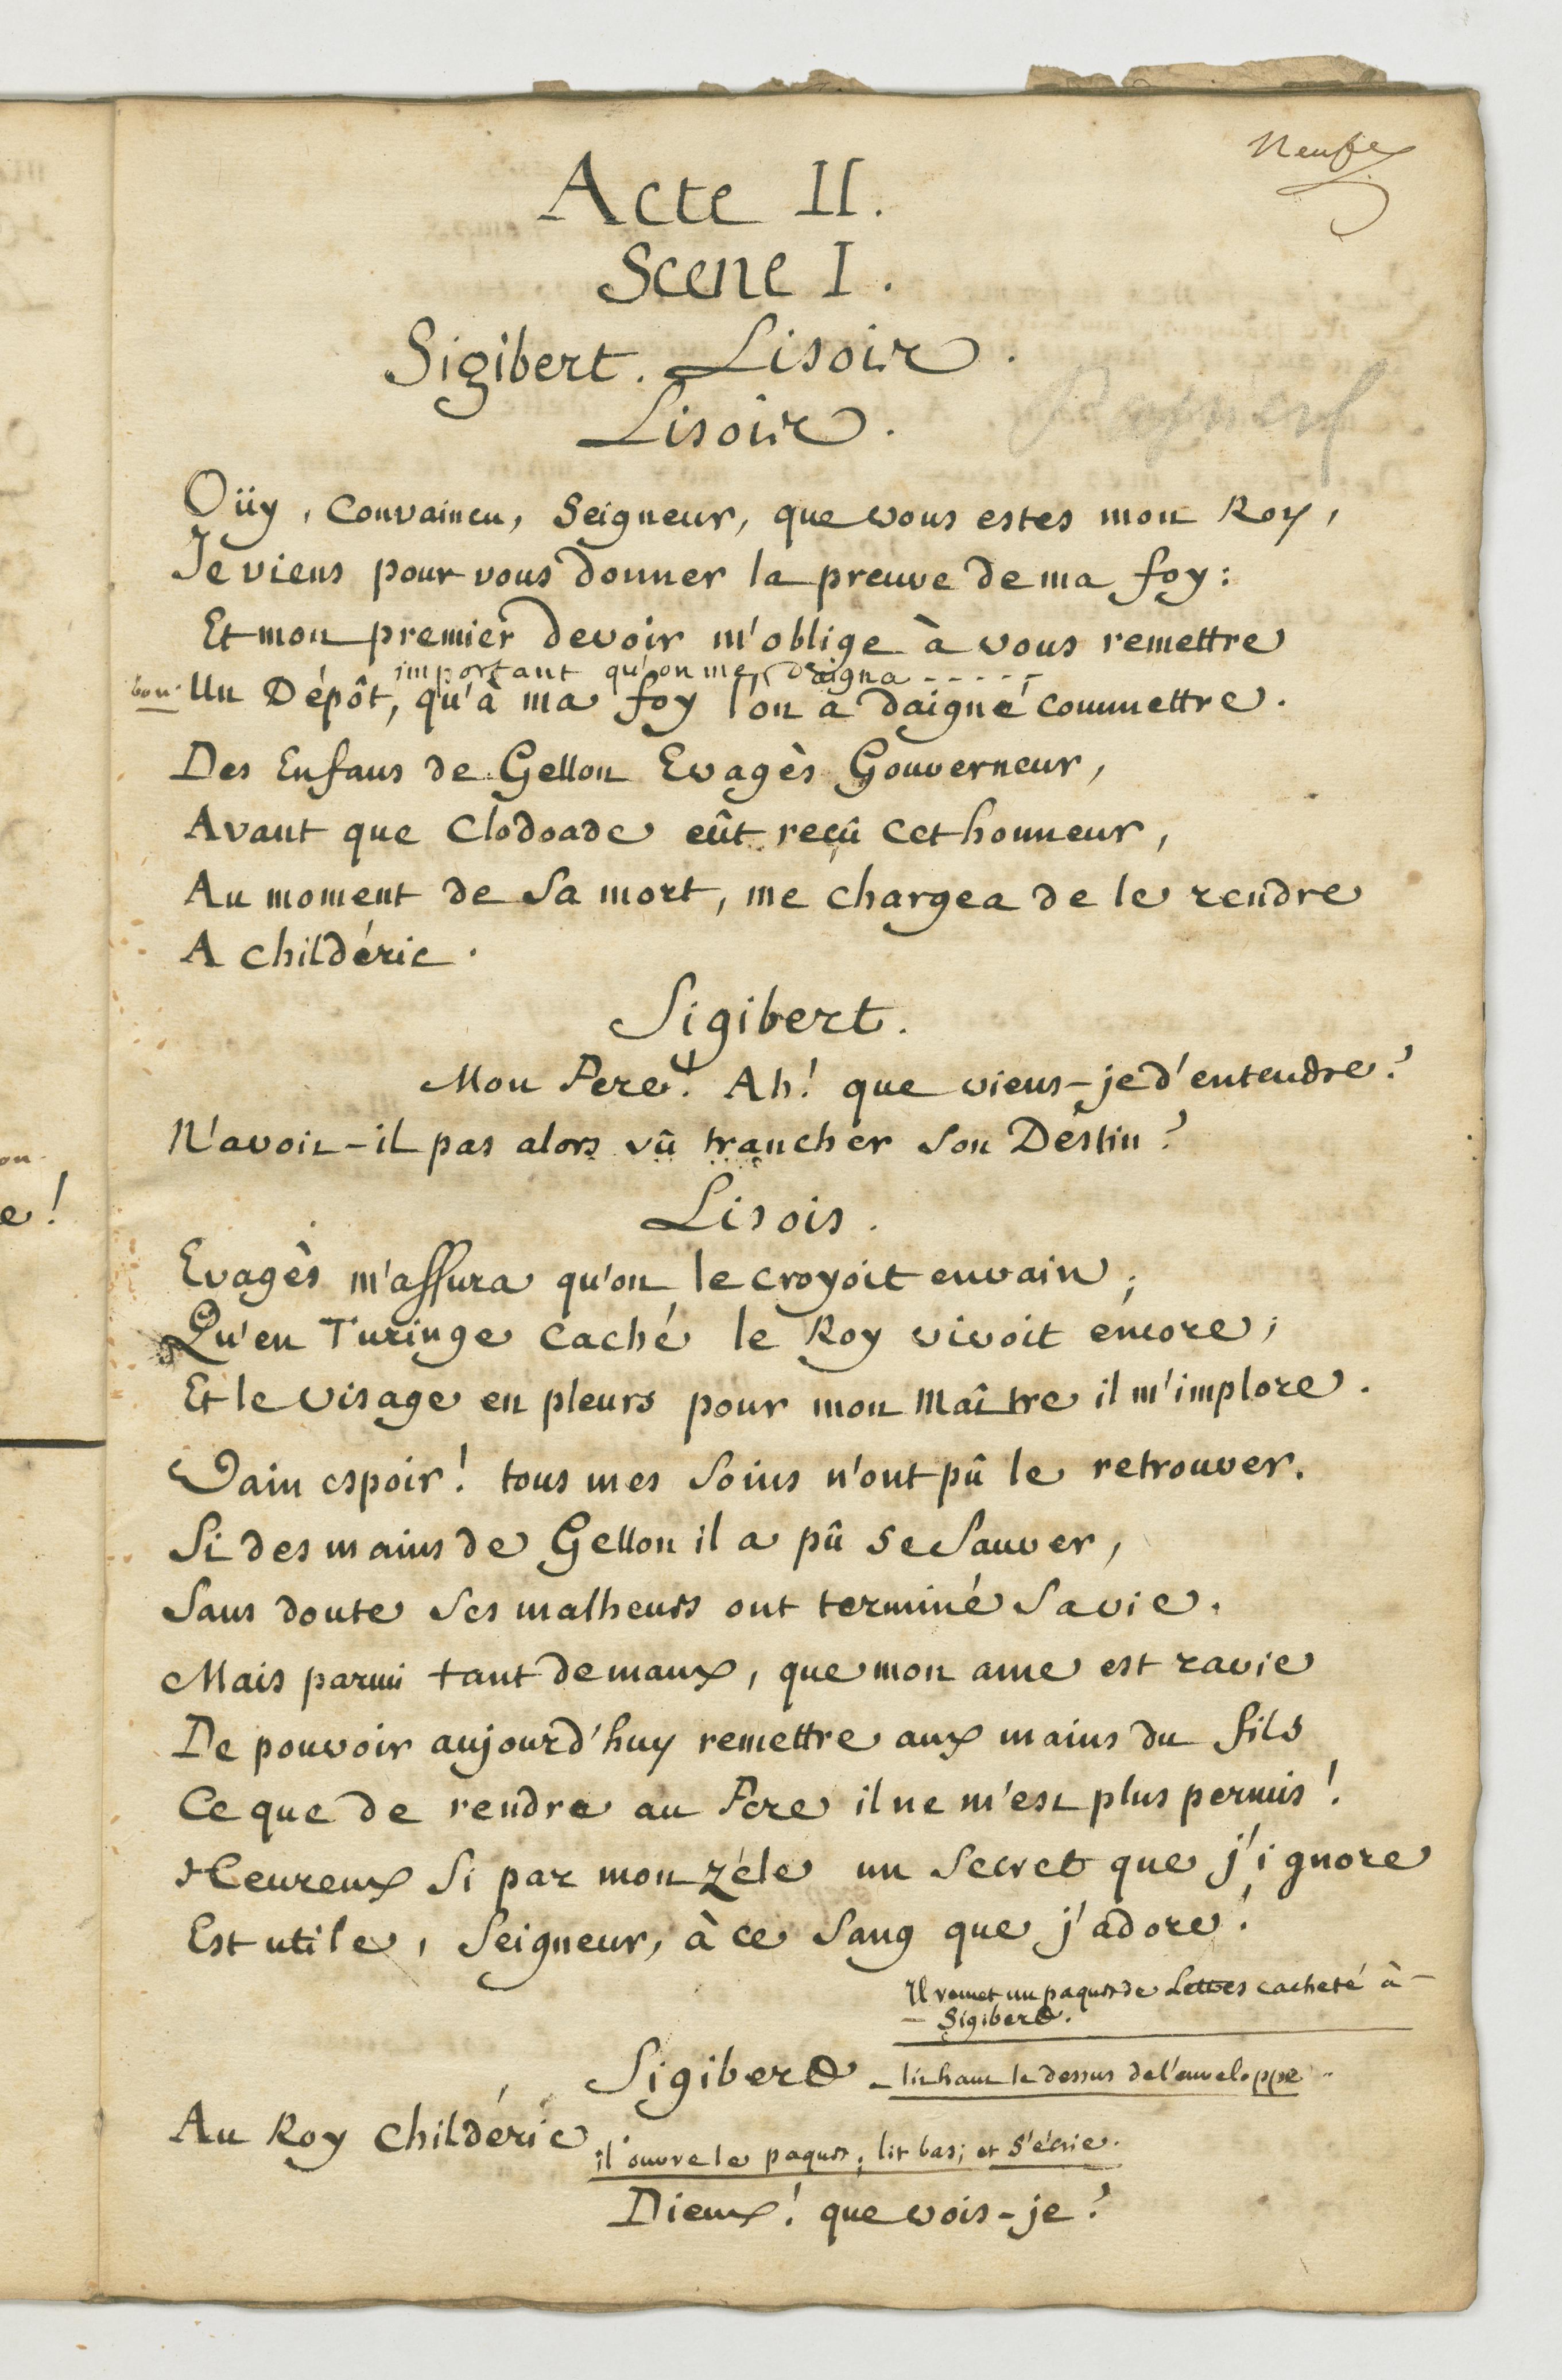 Neufe
Acte II.
Scene I.
Sigibert. Lisois.
Lisois.
Oüy, Convaincu, Seigneur, que vous estes mon Roy,
Je viens pour vous donner la preuve de ma foy:
Et mon premier devoir m'oblige à vous remettre
important qu'on me daigna - - - - -
bon. Un Dépôt, qu'à ma foy l'on a daigné commettre.
Des Enfans de Gellon Evagès Gouverneur,
Avant que Clodoade eût reçû cet honneur,
Au moment de Sa mort, me chargea de le rendre
A Childéric.
Sigibert.
Mon Pere! Ah! que viens-je d'entendre?
N'avoit-il pas alors vû trancher Son Destin?
Lisois.
Evagès m'assura qu'on le croyoit envain;
Qu'en Turinge caché le Roy vivoit encore;
Et le visage en pleurs pour mon Maître il m'implore.
Vain espoir! tous mes Soins n'ont pû le retrouver.
Si des mains de Gellon il a pû Se Sauver,
Sans doute Ses malheurs ont terminé Sa vie.
Mais parmi tant de maux, que mon ame est ravie
De pouvoir aujourd'huy remettre aux mains du fils
Ce que de rendre au Pere il ne m'est plus permis!
Heureux Si par mon zéle un Secret que j'ignore
Est utile, Seigneur, à ce Sang que j'adore!
Il remet un paquet de Lettres cacheté à -
- Sigibert.
Sigibert - lit haut le dessus de l'enveloppe -
Au Roy Childéric. il ouvre le paquet, lit bas; et S'écrie.
Dieux! que vois-je?
on.
e!